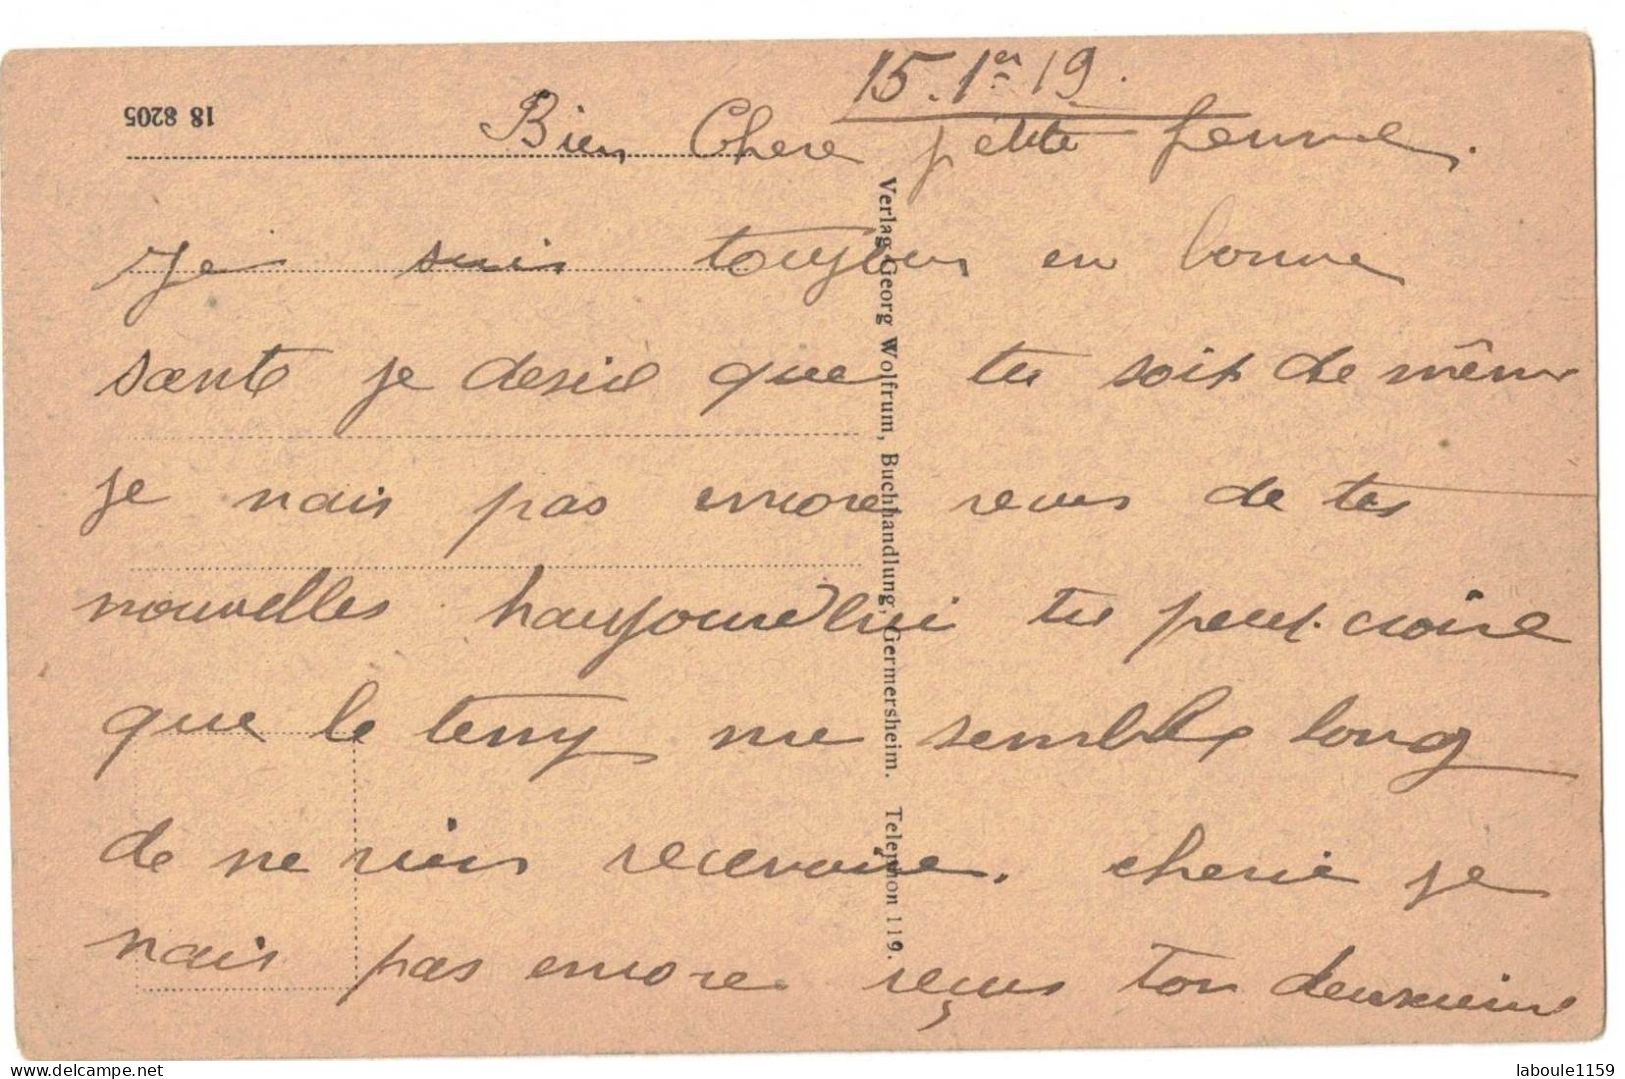 15. 1er 19.
18 8205
Bien Chere petite femme.
Je suis toujours en bonne
sante je desire que tu soit de même
je nais pas encore recus de tes
nouvelles haujourdhui tu peut croire
que le temp me semble long
de ne rien recevoire. cherie je
nais pas encore reçus ton deuxieme
Verlag Georg Wolfrum, Buchhandlung, Germersheim. Telephon 119.
delcampe.net
laboule1159